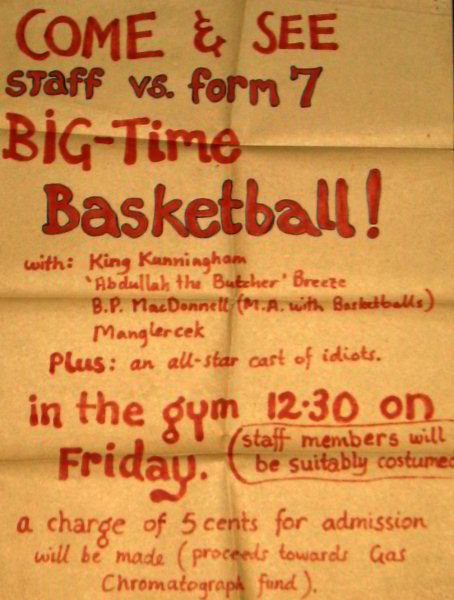 COME & SEE
Staff vs. form 7
BIG-Time
Basketball!
with: King Kunningham
"Abdullah the Butcher" Breeze
B.P. MacDonnell (M.A. with Basketballs)
Manglercek
Plus: an all-star cast of idiots.
in the gym 12.30 on
Friday.
(staff members will
be suitably costumed
a charge of 5 cents for admission
will be made (proceeds towards Gas
Chromatograph fund).